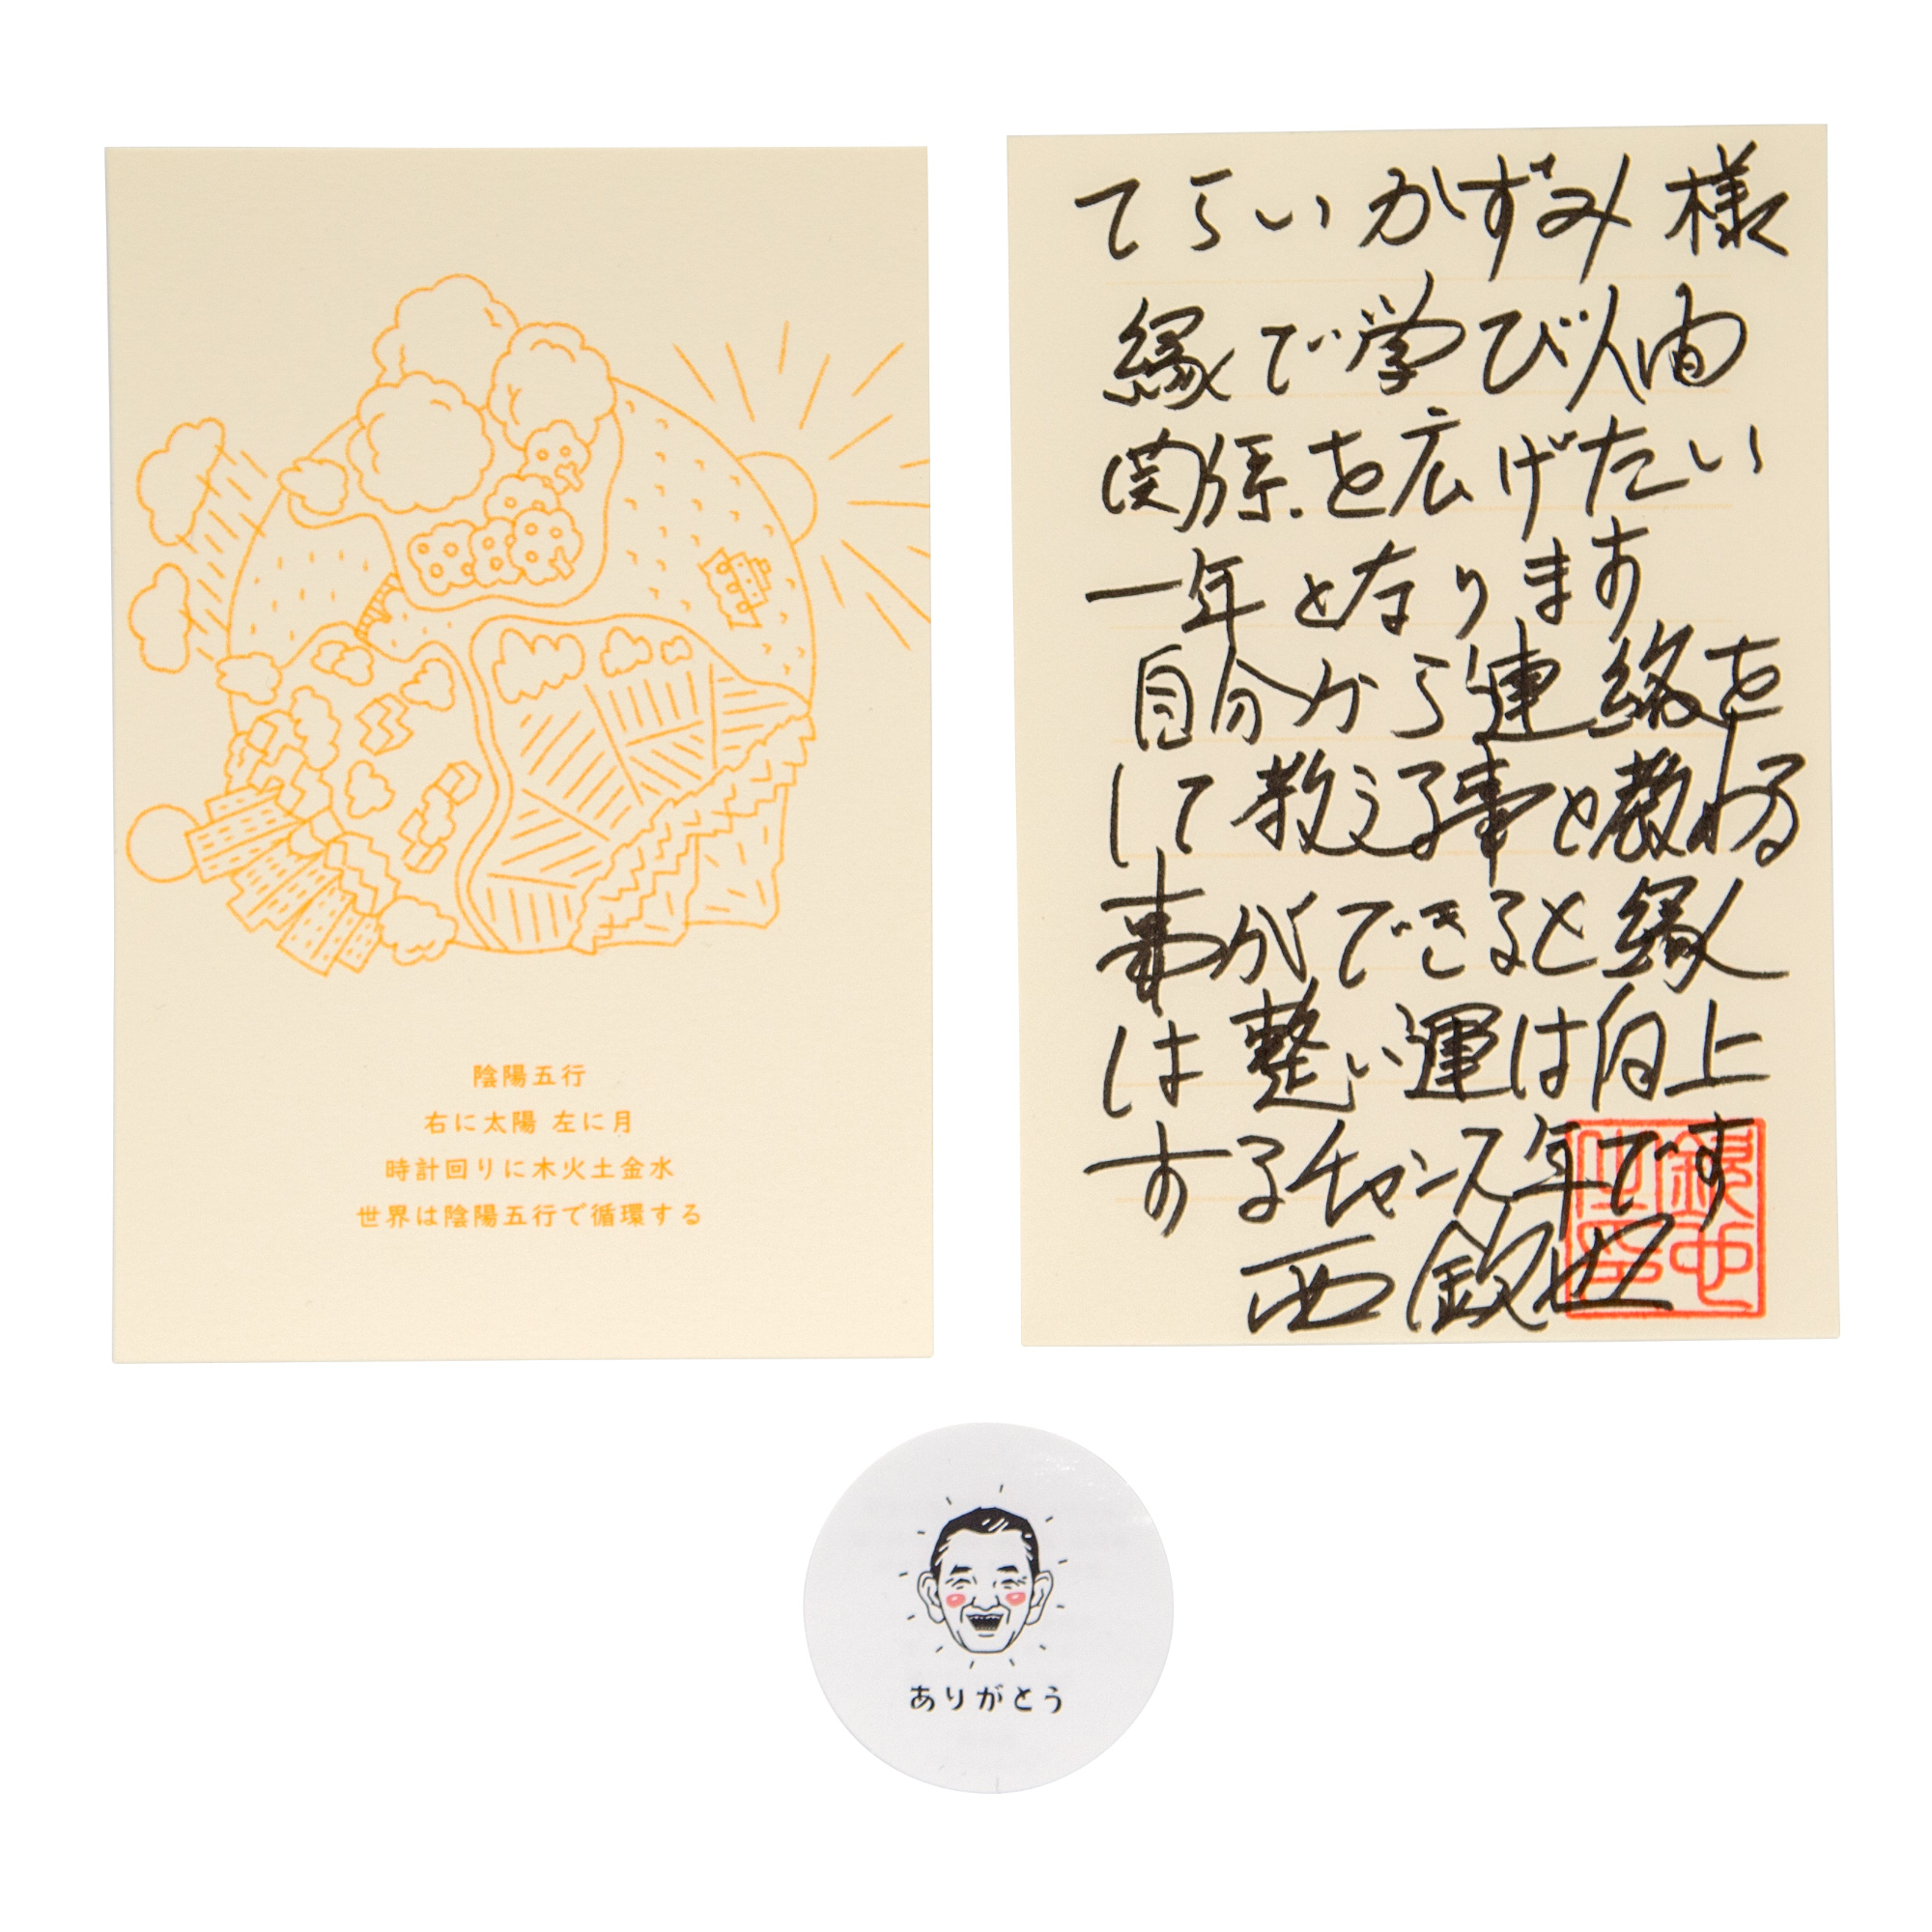 陰陽五行
右に太陽 左に月
時計回りに木火土金水
世界は陰陽五行で循環する
てらいかずみ様
縁で学び人間
関係を広げたい
一年となります
自分から連絡を
して教える事と教わる
事ができると縁人
は整い運は向上
するチャンス年です
西 欽也
ありがとう